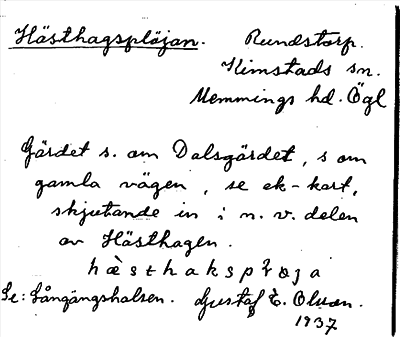 Hästhagsplöjan. Rundstorp.
Kimstads sn.
Memmings hd. Ögl
Gärdet s. om Dalsgärdet, s om
gamla vägen, se ek-kart,
skjutande in i n. v. delen
av Hästhagen.
Se: Långängshalsen. Gustaf E. Olsson.
1937